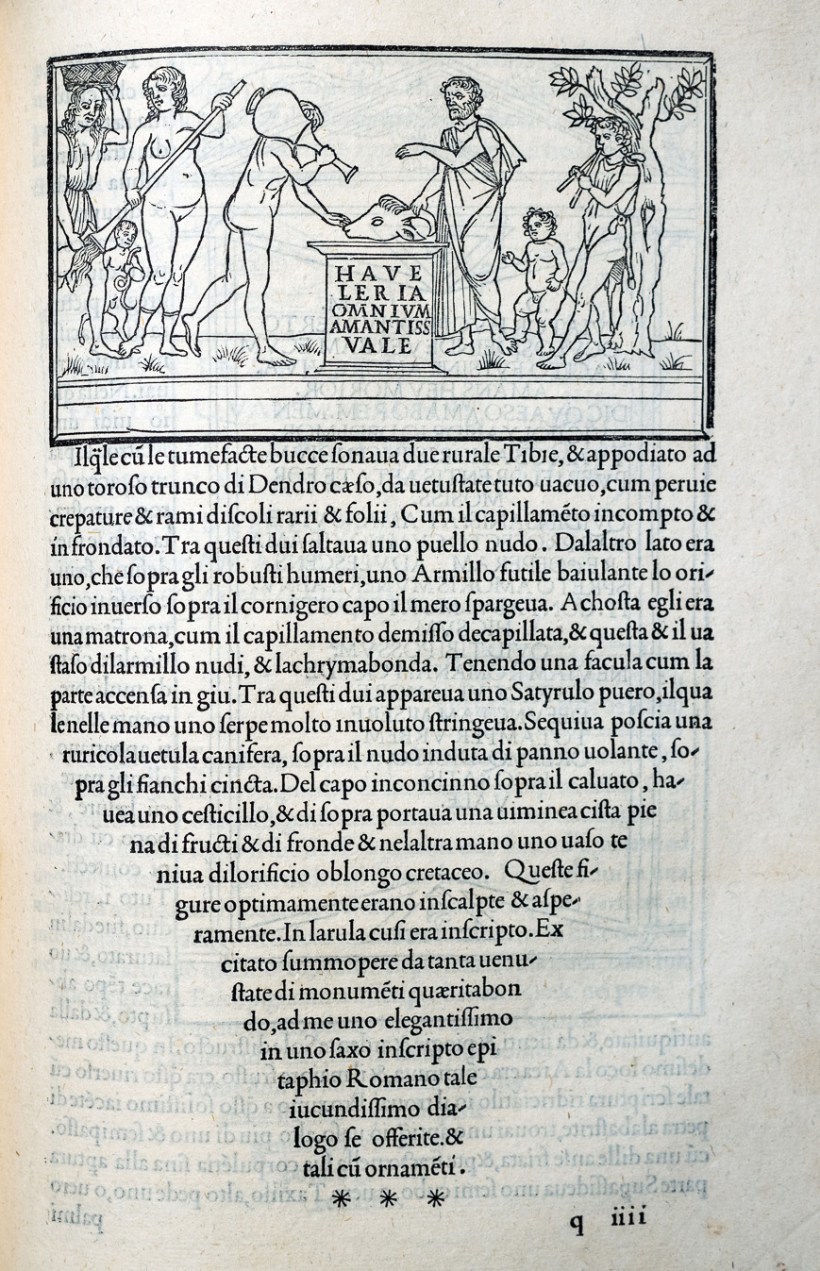 HAVE
LERIA
OMNIVM
AMANTISS
VALE
Ilq̃le cũ le tumefacte bucce sonaua due rurale Tibie, & appodiato ad
uno toroso trunco di Dendro cæso, da uetustate tuto uacuo, cum peruie
crepature & rami discoli rarii & folii, Cum il capillamẽto incompto &
infrondato. Tra questi dui saltaua uno puello nudo. Dalaltro lato era
uno, che sopra gli robusti humeri, uno Armillo futile baiulante lo ori-
ficio inuerso sopra il cornigero capo il mero spargeua. A chosta egli era
una matrona, cum il capillamento demisso decapillata, & questa & il ua
staso dilarmillo nudi, & lachrymabonda. Tenendo una facula cum la
parte accensa in giu. Tra questi dui appareua uno Satyrulo puero, ilqua
le nelle mano uno serpe molto inuoluto stringeua. Sequiua poscia una
ruricola uetula canifera, sopra il nudo induta di panno uolante, so-
pra gli fianchi cincta. Del capo inconcinno sopra il caluato, ha-
uea uno cesticillo, & di sopra portaua una uiminea cista pie
na di fructi & di fronde & nelaltra mano uno uaso te
niua dilorificio oblongo cretaceo. Queste fi-
gure optimamente erano inscalpte & aspe-
ramente. In larula cusi era inscripto. Ex
citato summopere da tanta uenu-
state di monumẽti quæritabon
do, ad me uno elegantissimo
in uno saxo inscripto epi
taphio Romano tale
iucundissimo dia-
logo se offerite. &
tali cũ ornamẽti.
* * *
q iiii